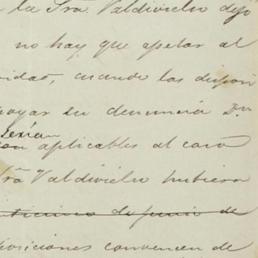 la Sra. Valdivielso dejo
no hay que apelar al
ridad, cuando las dispon
poyar su denuncia Dn
serían
son aplicables al caso
Sra Valdivielso hubiera
veticinco de junio de
posiciones convencen de